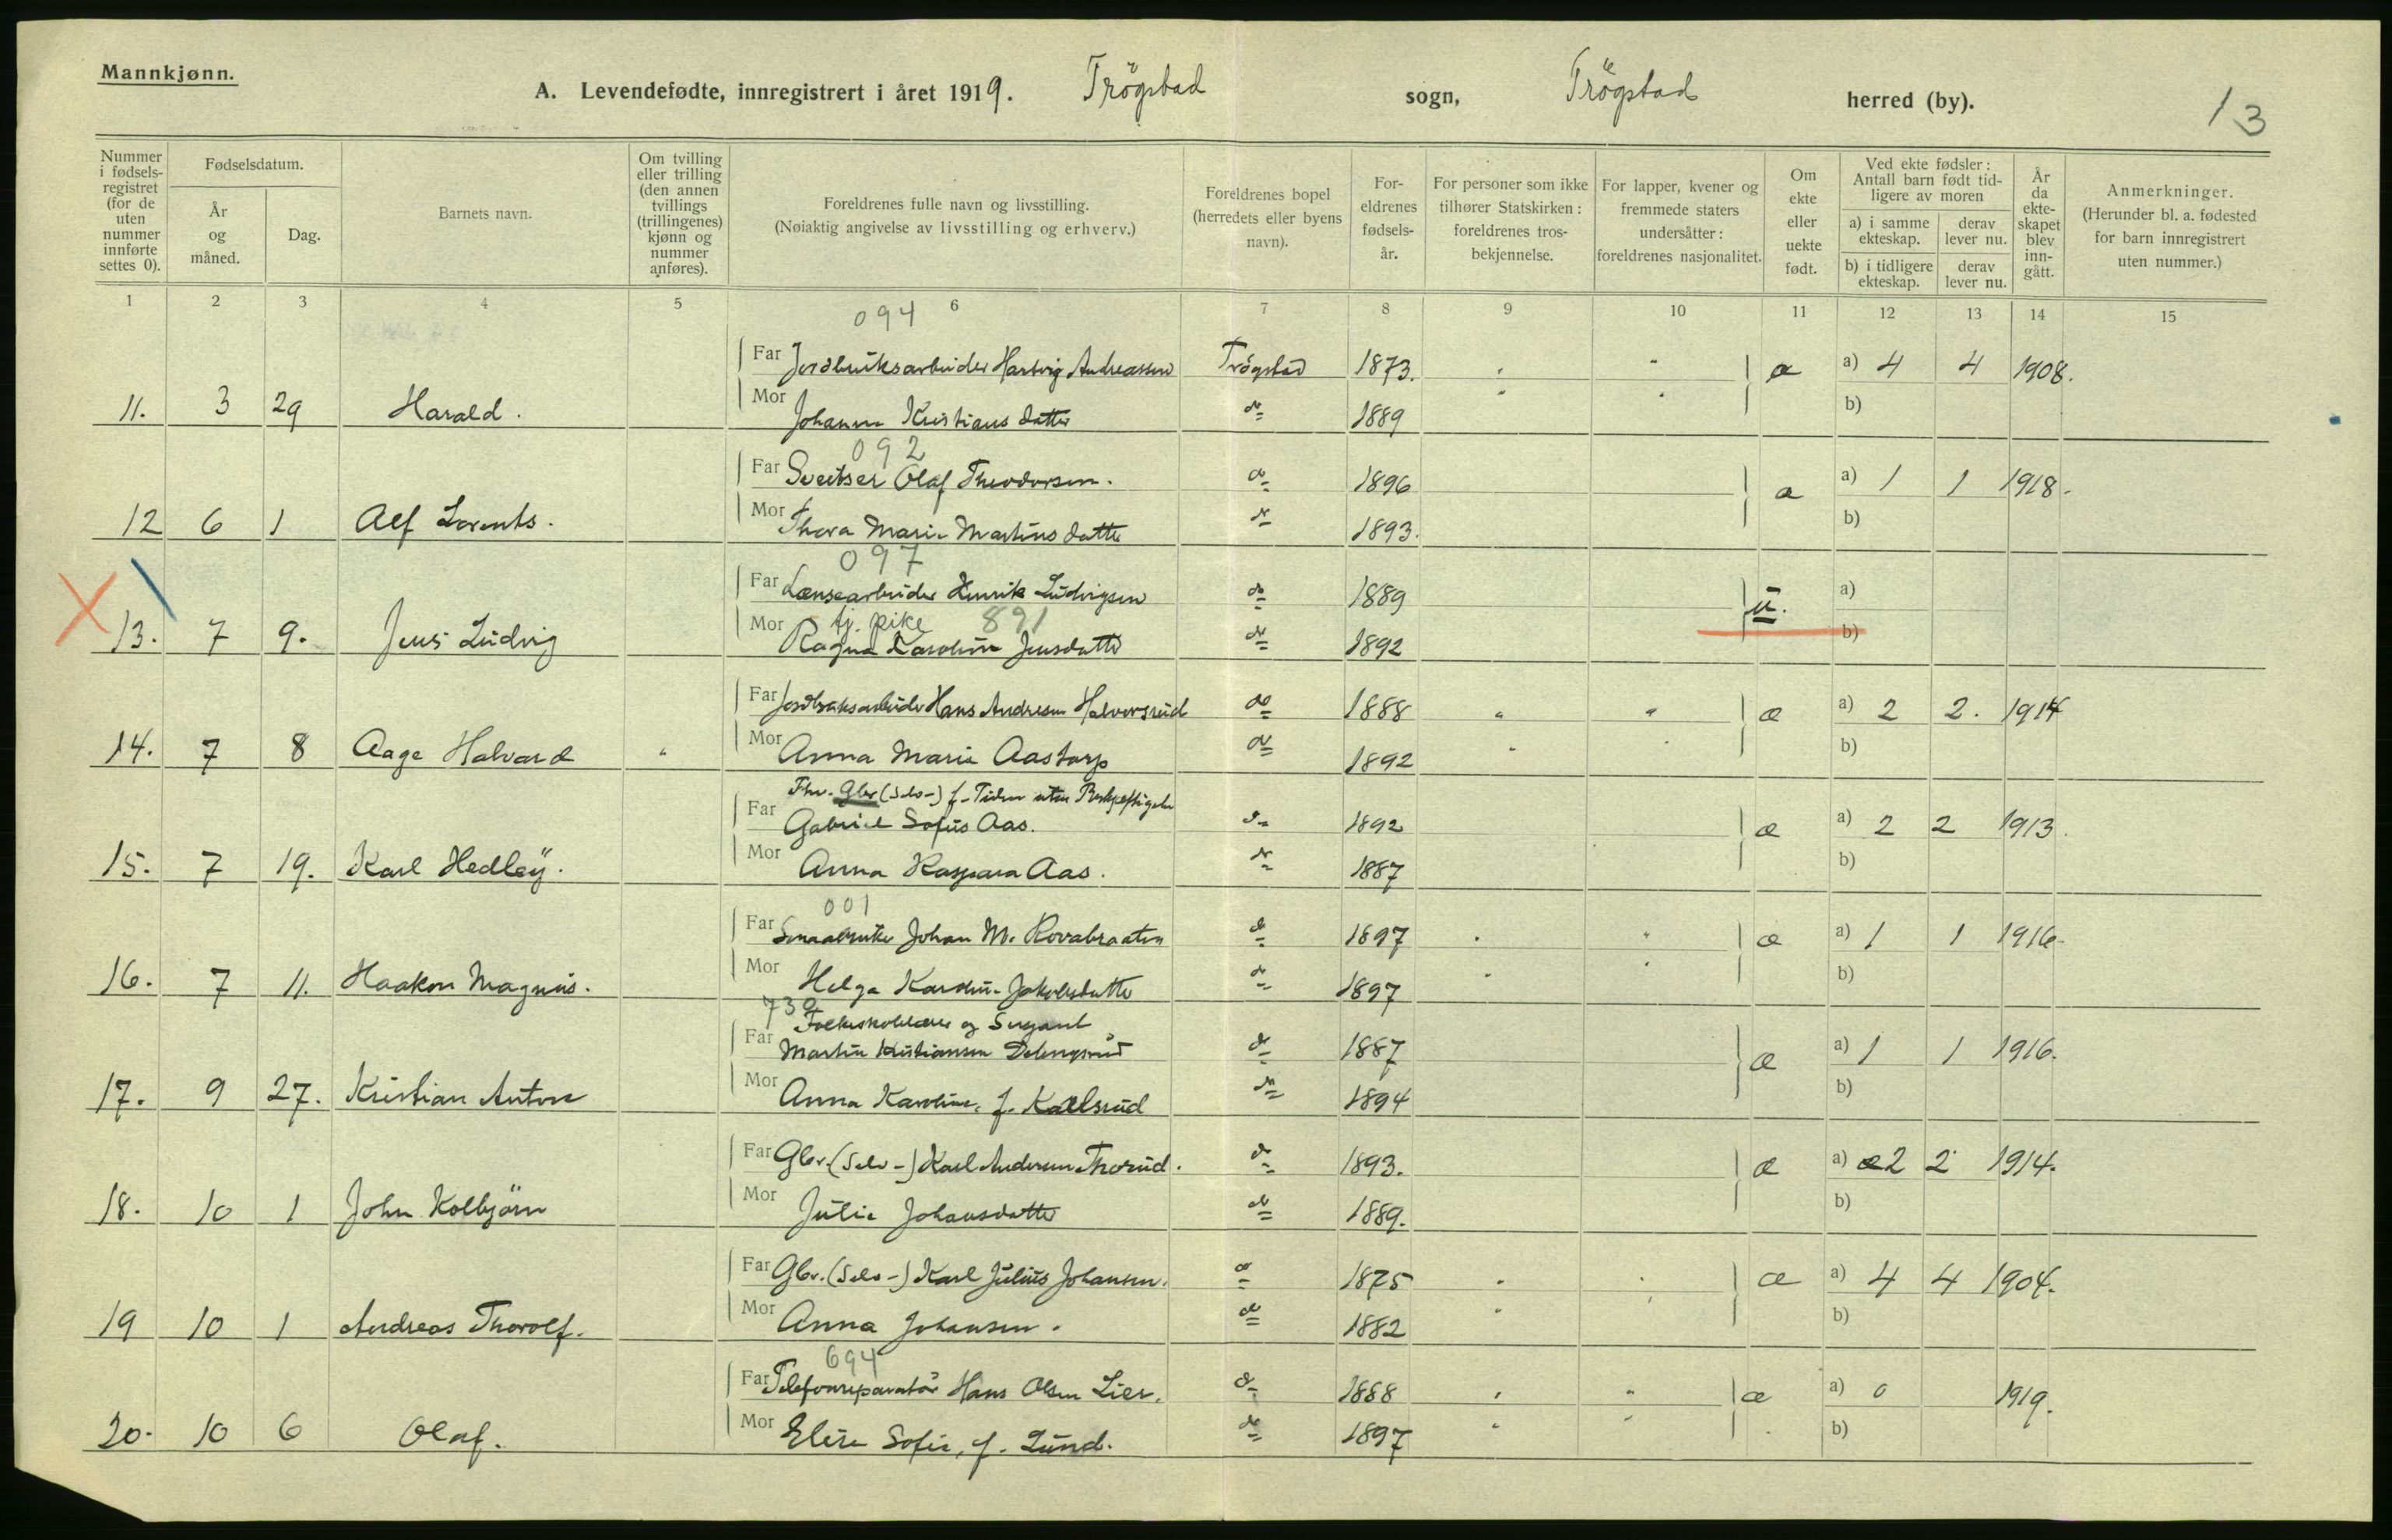 Mannkjønn.
A. Levendefødte, innregistrert i året 1919. Trögstad sogn, Trögstad herred (by). 13
Nummer i fødselsregistret (for de uten nummer innførte settes 0).
Fødselsdatum.
År og måned.
Dag.
Barnets navn.
Om tvilling eller trilling (den annen tvillings (trillingenes) kjønn og nummer anføres).
Foreldrenes fulle navn og livsstilling.
(Nøiaktig angivelse av livsstilling og erhverv.)
Foreldrenes bopel (herredets eller byens navn).
Foreldrenes fødselsår.
For personer som ikke tilhører Statskirken: foreldrenes trosbekjennelse.
For lapper, kvener og fremmede staters undersåtter: foreldrenes nasjonalitet.
Om ekte eller uekte født.
Ved ekte fødsler: Antall barn født tidligere av moren
a) i samme ekteskap.
derav lever nu.
b) i tidligere ekteskap.
derav lever nu.
År da ekteskapet blev inngått.
Anmerkninger.
(Herunder bl. a. fødested for barn innregistrert uten nummer.)
1 2 3 4 5 6 7 8 9 10 11 12 13 14 15
094
Far Jordbruksarbeider Hartvig Andreassen Trögstad 1873. " æ a) 4 4 1908.
11. 3 29 Harald. Mor Johanne Kristians datter do 1889 b)
092
Far Sveitser Olaf Theodorsen. do 1896 æ a) 1 1 1918.
12 6 1 Alf Lorents. Mor Thora Marie Martins datter do 1893. b)
097
Far Lænsearbeider Henrik Ludvigsen do 1889 u. a)
tj. pike 891
13. 7 9. Jens Ludvig Mor Ragna Karoline Jensdatter do 1892 b)
Far Jordbruksarbeider Hans Andresen Halvorsrud do 1888 " " æ a) 2 2. 1914
14. 7 8 Aage Halvard " Mor Anna Marie Aastorp do 1892 b)
Fhv. Gbr (Selv-) f. Tiden uten Beskjeftigelse
Far Gabriel Sofus Aas. do 1892 æ a) 2 2 1913.
15. 7 19. Karl Hedley. Mor Anna Kaspara Aas. do 1887 b)
001
Far Smaabruker Johan M. Rovabraaten do 1897 " æ a) 1 1 1916.
16. 7 11. Haakon Magnus. Mor Helga Karoline Jakobsdatter do 1897 b)
730
Folkeskolelærer og Sergeant
Far Martin Kristiansen do 1887 æ a) 1 1 1916.
17. 9 27. Kristian Anton Mor Anna Karoline, f. Karlsrud do 1894 b)
Far Gbr. (Selv-) Karl Andersen Thorud. do 1893. æ a) 2 2 1914.
18. 10 1 John Kolbjörn Mor Julie Johansdatter do 1889. b)
Far Gbr. (Selv-) Karl Julius Johansen. do 1875 æ a) 4 4 1904.
19 10 1 Andreas Thorolf. Mor Anna Johansen. do 1882 b)
694
Far Telefonreparatör Hans Olsen Lier. do 1888 " æ a) 0 1919.
20. 10 6 Olaf. Mor Elise Sofie, f. Lund. do 1897 b)